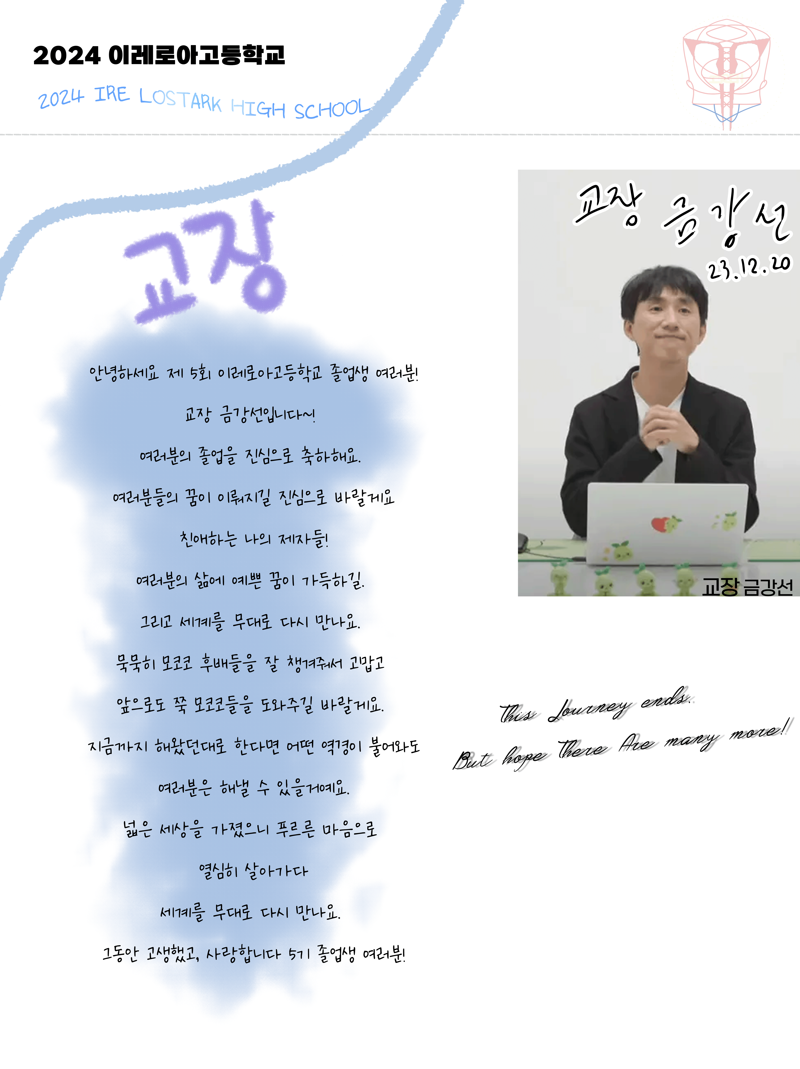 2024 이레로아고등학교
2024 IRE LOSTARK HIGH SCHOOL
교장
안녕하세요 제 5회 이레로아고등학교 졸업생 여러분!
교장 금강선입니다~!
여러분의 졸업을 진심으로 축하해요.
여러분들의 꿈이 이뤄지길 진심으로 바랄게요
친애하는 나의 제자들!
여러분의 삶에 예쁜 꿈이 가득하길.
그리고 세계를 무대로 다시 만나요.
묵묵히 모코코 후배들을 잘 챙겨줘서 고맙고
앞으로도 쭉 모코코들을 도와주길 바랄게요.
지금까지 해왔던대로 한다면 어떤 역경이 불어와도
여러분은 해낼 수 있을거예요.
넓은 세상을 가졌으니 푸르른 마음으로
열심히 살아가다
세계를 무대로 다시 만나요.
그동안 고생했고, 사랑합니다 5기 졸업생 여러분!
교장 금강선
23.12.20
교장 금강선
This Journey ends..
But hope There Are many more!!